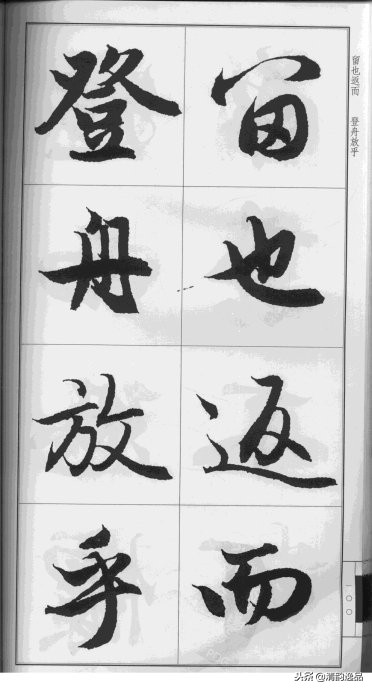 留也返而
登舟放乎
留也返而 登舟放乎
一〇〇
头条@清韵逸品